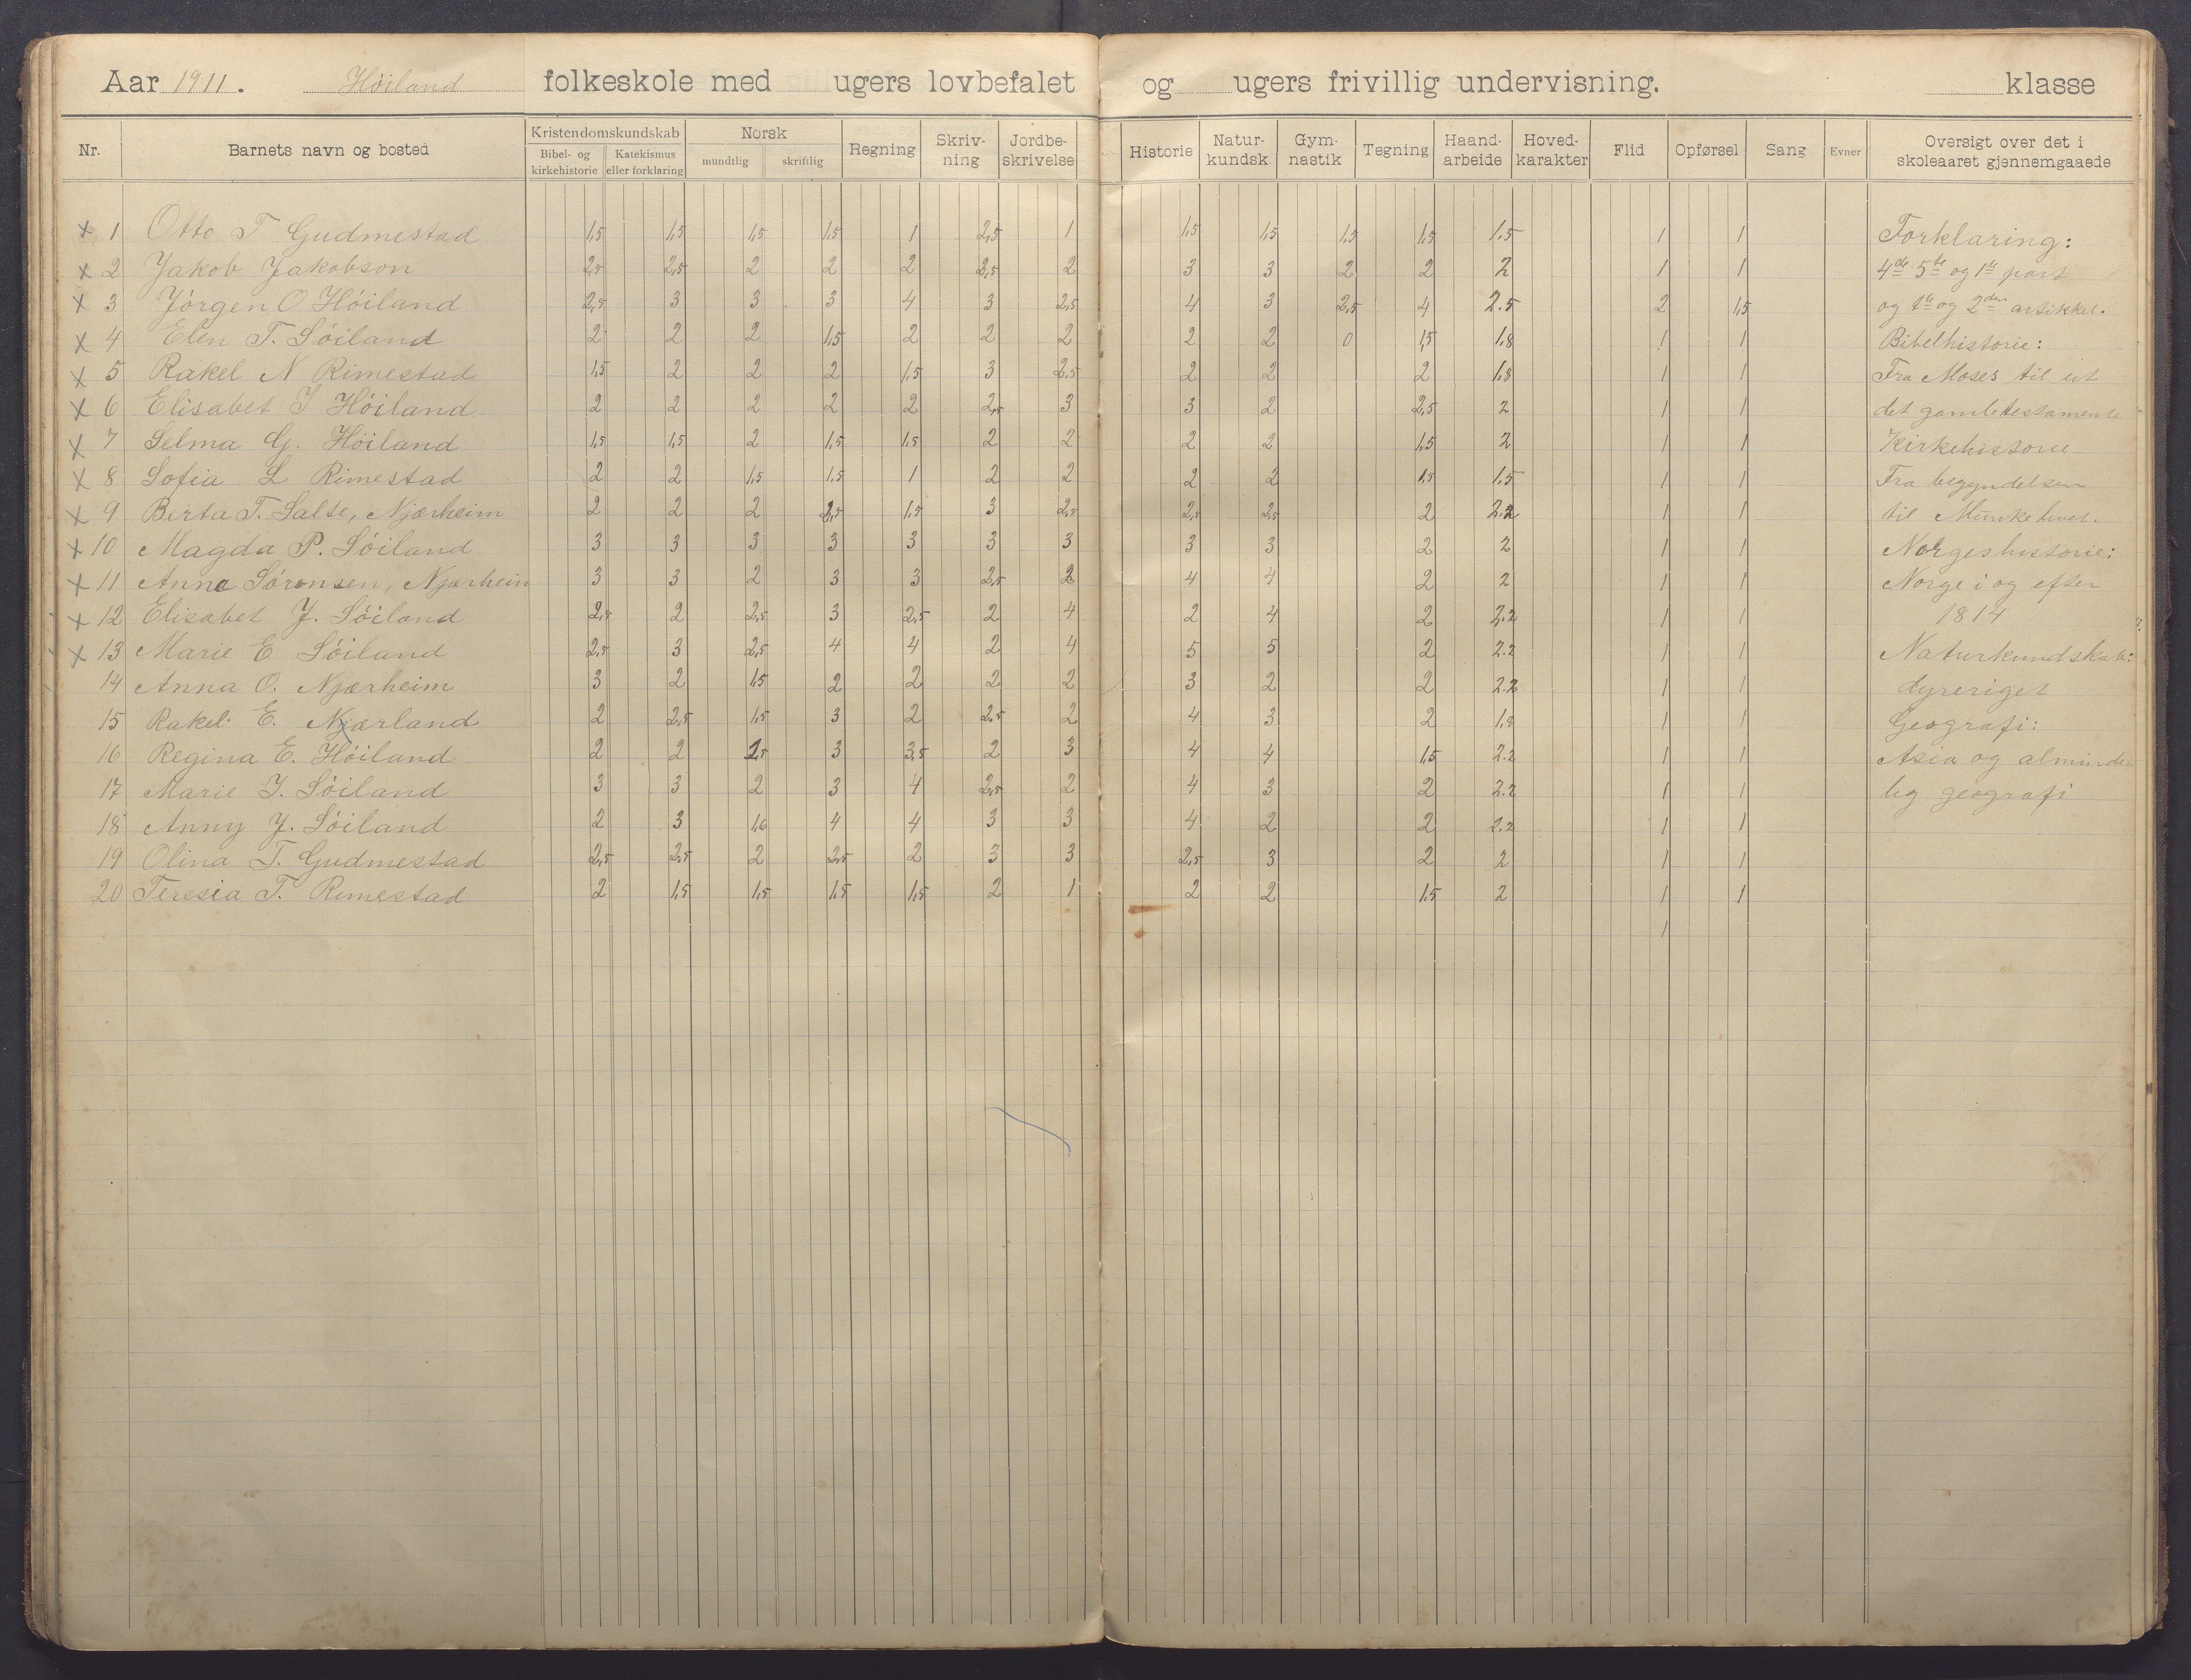 Aar 1911. Höiland folkeskole med ugers lovbefalet og ugers frivillig undervisning. klasse
Nr. Barnets navn og bosted Kristendomskundskab Bibel- og kirkehistorie Katekismus eller forklaring Norsk mundtlig skriftlig Regning Skriv-ning Jordbe-skrivelse Historie Natur-kundsk. Gym-nastik Tegning Haand-arbeide Hoved-karakter Flid Opførsel Sang Evner Oversigt over det i skoleaaret gjennemgaaede
x 1 Otto T Gudmestad 1,5 1,5 1,5 1,5 1 2,5 1 1,5 1,5 1,5 1,5 1.5 1 1 Forklaring:
x 2 Jakob Jakobson 2,5 2,5 2 2 2 2,5 2 3 3 2 2 2 1 1 4de 5te og 1te part
x 3 Jörgen O Höiland 2,5 3 3 3 4 3 2,5 4 3 2,5 4 2.5 2 1,5 og 1te og 2den artikkel.
x 4 Elen T. Söiland 2 2 2 1,5 2 2 2 2 2 0 1,5 1.8 1 1 Bibelhistorie:
x 5 Rakel N Rimestad 1,5 2 2 2 1,5 3 2,5 2 2 2 1.8 1 1 Fra Moses til ut
x 6 Elisabet I Höiland 2 2 2 2 2 2,5 3 3 2 2,5 2 1 1 det gamle testamente
x 7 Selma G. Höiland 1,5 1,5 2 1,5 1,5 2 2 2 2 1,5 2 1 1 Kirkehistorie
x 8 Sofia L Rimestad 2 2 1,5 1,5 1 2 2 2 2 1,5 1.5 1 1 Fra begyndelsen
x 9 Berta T. Salte, Njærheim 2 2 2 2,5 1,5 3 2,5 2,5 2,5 2 2.2 1 1 til
x 10 Magda P. Söiland 3 3 3 3 3 3 3 3 3 2 2 1 1 Norgeshistorie:
x 11 Anna Sörensen, Njærheim 3 3 2 3 3 2,5 2 4 4 2 2 1 1 Norge i og efter
x 12 Elisabet J. Söiland 2,5 2 2,5 3 2,5 2 4 2 4 2 2.2 1 1 1814
x 13 Marie E Söiland 2,5 3 2,5 4 4 2 4 5 5 2 2.2 1 1 Naturkundskab:
14 Anna O. Njærheim 3 2 1,5 2 2 2 2 3 2 2 2.2 1 1 dyreriget
15 Rakel E. Njærland 2 2,5 1,5 3 2 2,5 2 4 3 2 1.8 1 1 Geografi:
16 Regina E. Höiland 2 2 2,5 3 3,5 2 3 4 4 1,5 2.2 1 1 Asia og alminde-
17 Marie J. Söiland 3 3 2 3 4 2,5 2 4 3 2 2.2 1 1 lig geografi
18 Anny J. Söiland 2 3 1,6 4 4 3 3 4 2 2 2.2 1 1
19 Olina T. Gudmestad 2,5 2,5 2 2,5 2 3 3 2,5 3 2 2 1 1
20 Teresia T. Rimestad 2 1,5 1,5 1,5 1,5 2 1 2 2 1,5 2 1 1
1